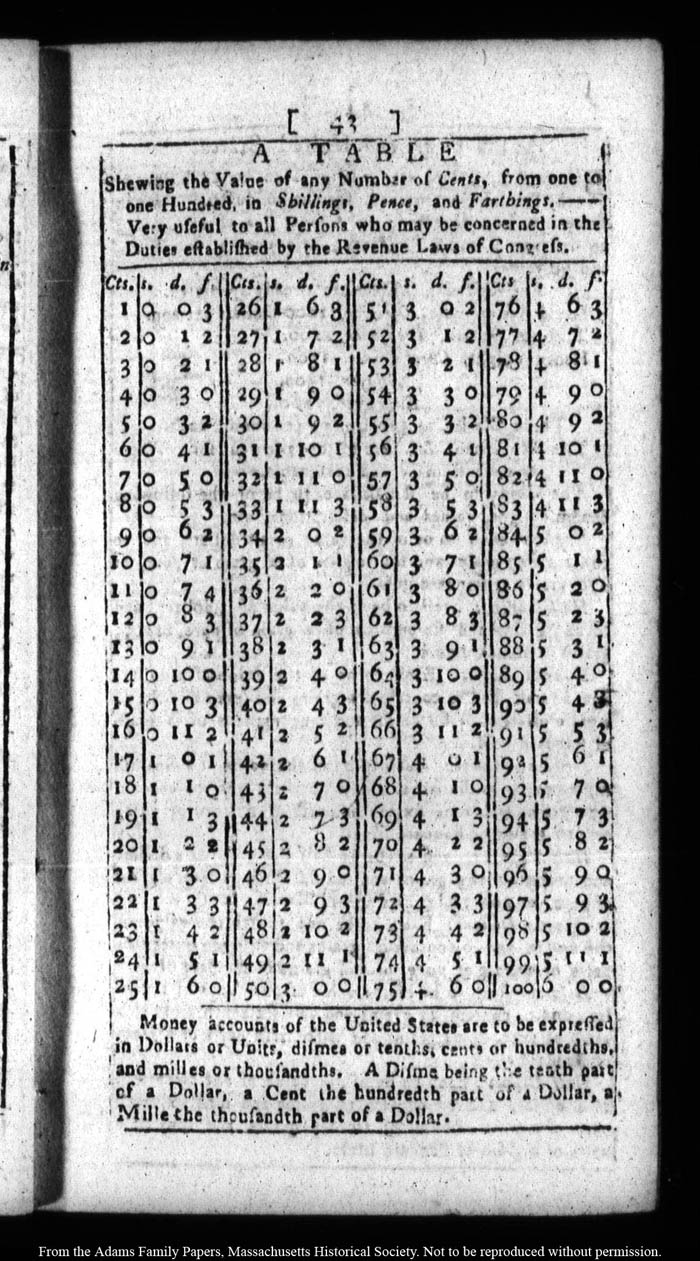 [ 43 ]
A TABLE
Shewing the Value of any Number of Cents, from one to
one Hundred, in Shillings, Pence, and Farthings.——
Very uſeful to all Perſons who may be concerned in the
Duties eſtabliſhed by the Revenue Laws of Congreſs.
Cts. s. d. f. Cts. s. d. f. Cts. s. d. f. Cts s. d. f.
1 0 0 3 26 1 6 3 51 3 0 2 76 4 6 3
2 0 1 2 27 1 7 2 52 3 1 2 77 4 7 2
3 0 2 1 28 1 8 1 53 3 2 1 78 4 8 1
4 0 3 0 29 1 9 0 54 3 3 0 79 4 9 0
5 0 3 2 30 1 9 2 55 3 3 2 80 4 9 2
6 0 4 1 31 1 10 1 56 3 4 1 81 4 10 1
7 0 5 0 32 1 11 0 57 3 5 0 82 4 11 0
8 0 5 3 33 1 11 3 58 3 5 3 83 4 11 3
9 0 6 2 34 2 0 2 59 3 6 2 84 5 0 2
10 0 7 1 35 2 1 1 60 3 7 1 85 5 1 1
11 0 7 4 36 2 2 0 61 3 8 0 86 5 2 0
12 0 8 3 37 2 2 3 62 3 8 3 87 5 2 3
13 0 9 1 38 2 3 1 63 3 9 1 88 5 3 1
14 0 10 0 39 2 4 0 64 3 10 0 89 5 4 0
15 0 10 3 40 2 4 3 65 3 10 3 90 5 4 3
16 0 11 2 41 2 5 2 66 3 11 2 91 5 5 3
17 1 0 1 42 2 6 1 67 4 0 1 92 5 6 1
18 1 1 0 43 2 7 0 68 4 1 0 93 5 7 0
19 1 1 3 44 2 7 3 69 4 1 3 94 5 7 3
20 1 2 2 45 2 8 2 70 4 2 2 95 5 8 2
21 1 3 0 46 2 9 0 71 4 3 0 96 5 9 0
22 1 3 3 47 2 9 3 72 4 3 3 97 5 9 3
23 1 4 2 48 2 10 2 73 4 4 2 98 5 10 2
24 1 5 1 49 2 11 1 74 4 5 1 99 5 11 1
25 1 6 0 50 3 0 0 75 4 6 0 100 6 0 0
Money accounts of the United States are to be expreſſed
in Dollars or Units, diſmes or tenths, cents or hundredths,
and milles or thouſandths. A Diſme being the tenth part
of a Dollar, a Cent the hundredth part of a Dollar, a
Mille the thouſandth part of a Dollar.
From the Adams Family Papers, Massachusetts Historical Society. Not to be reproduced without permission.